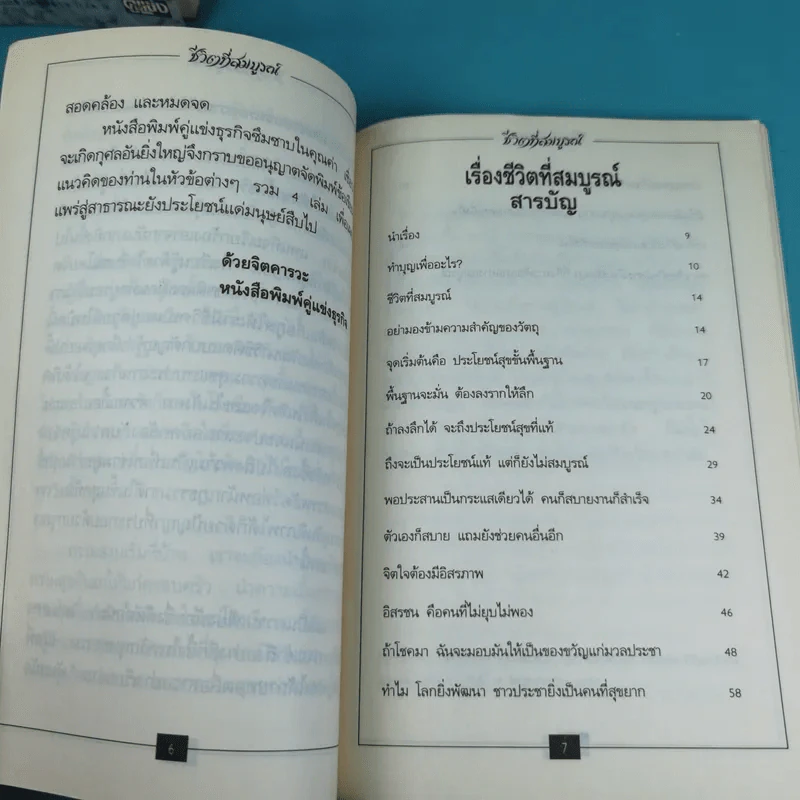 ชีวิตที่สมบูรณ์
สอดคล้อง และหมดจด
หนังสือพิมพ์คู่แข่งธุรกิจซึมซาบในคุณค่า
จะเกิดกุศลอันยิ่งใหญ่จึงกราบขออนุญาตจัดพิมพ์
แนวคิดของท่านในหัวข้อต่างๆ รวม 4 เล่ม
แพร่สู่สาธารณะยังประโยชน์แด่มนุษย์สืบไป
ด้วยจิตคารวะ
หนังสือพิมพ์คู่แข่งธุรกิจ
6
ชีวิตที่สมบูรณ์
เรื่องชีวิตที่สมบูรณ์
สารบัญ
นำเรื่อง 9
ทำบุญเพื่ออะไร? 10
ชีวิตที่สมบูรณ์ 14
อย่ามองข้ามความสำคัญของวัตถุ 14
จุดเริ่มต้นคือ ประโยชน์สุขขั้นพื้นฐาน 17
พื้นฐานจะมั่น ต้องลงรากให้ลึก 20
ถ้าลงลึกได้ จะถึงประโยชน์สุขที่แท้ 24
ถึงจะเป็นประโยชน์แท้ แต่ก็ยังไม่สมบูรณ์ 29
พอประสานเป็นกระแสเดียวได้ คนก็สบายงานก็สำเร็จ 34
ตัวเองก็สบาย แถมยังช่วยคนอื่นอีก 39
จิตใจต้องมีอิสรภาพ 42
อิสรชน คือคนที่ไม่ยุบไม่พอง 46
ถ้าโชคมา ฉันจะมอบมันให้เป็นของขวัญแก่มวลประชา 48
ทำไม โลกยิ่งพัฒนา ชาวประชายิ่งเป็นคนที่สุขยาก 58
7